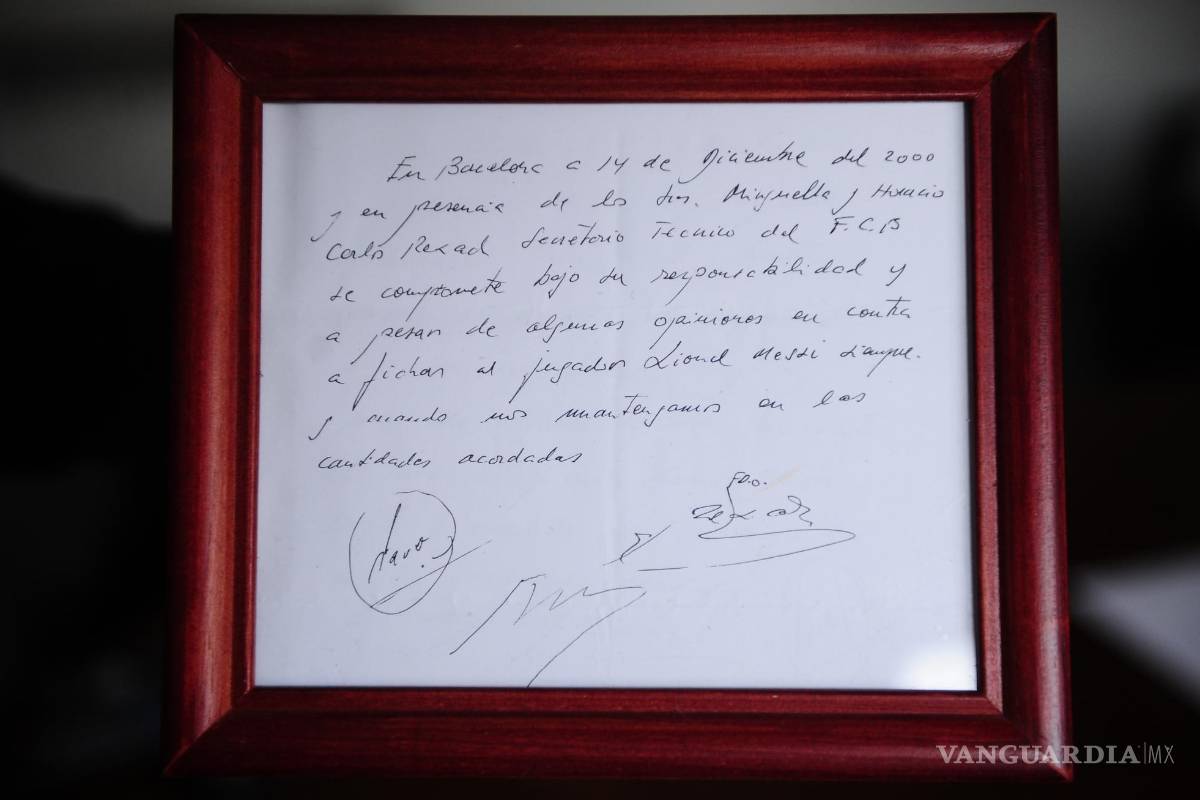 En Barcelona a 14 de Diciembre del 2000
y en presencia de los Srs. Minguella y Horacio
Carlos Rexach Secretario Tecnico del F.C.B
se compromete bajo su responsabilidad y
a pesar de algunas opiniones en contra
a fichar al jugador Lionel Messi siempre.
y cuando nos mantengamos en las
cantidades acordadas
FDO.
VANGUARDIA|MX